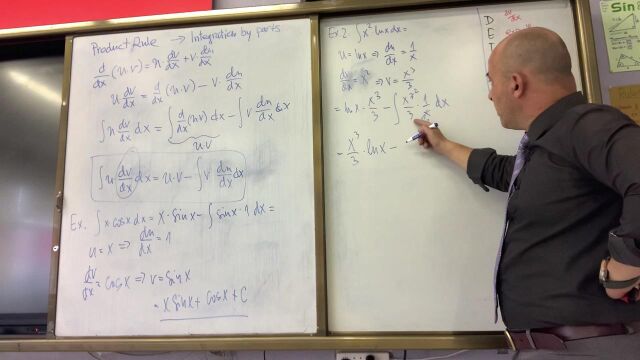 Product Rule → Integration by parts
d/dx (u·v) = u·dv/dx + v·du/dx
u dv/dx = d/dx (u·v) − v·du/dx
∫ u dv/dx dx = ∫ d/dx (u·v) dx − ∫ v du/dx dx
u·v
∫ u dv/dx dx = u·v − ∫ v du/dx dx
Ex. ∫ x·cosx dx = x·sinx − ∫ sinx·1 dx =
u = x ⇒ du/dx = 1
dv/dx = cosx ⇒ v = sinx
= x sinx + cosx + C
Ex2. ∫ x² lnx dx =
u = lnx ⇒ du/dx = 1/x
dv/dx = x² ⇒ v = x³/3
= lnx · x³/3 − ∫ x³/3 · 1/x dx
= x³/3 · lnx −
D
E
Sin